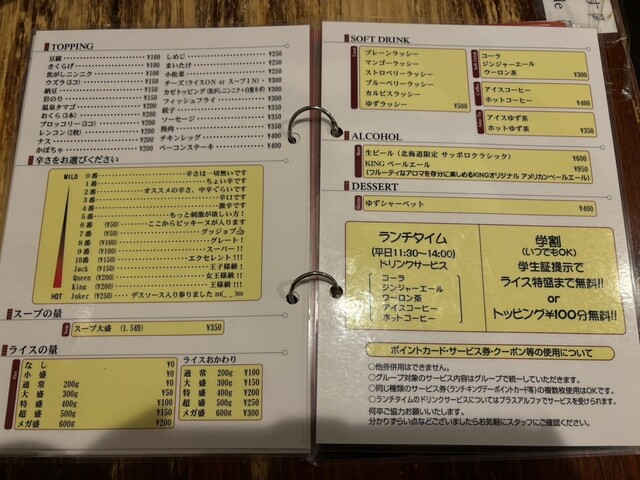 TOPPING
豆腐 ¥100
きくらげ ¥100
焦がしニンニク ¥100
ウズラ(3コ) ¥150
納豆 ¥150
岩のり ¥150
温泉タマゴ ¥200
おくら(3本) ¥200
ブロッコリー(3コ) ¥200
レンコン(2枚) ¥200
ナス ¥200
かぼちゃ ¥200
しめじ ¥250
まいたけ ¥250
小松菜 ¥250
チーズ(ライスON or スープIN)
カゼトッピング(焦がしニンニク+白髪ネギ)
フィッシュフライ
餃子
ソーセージ
挽肉
チキンレッグ ¥400
ベーコンステーキ ¥400
辛さをお選びください
MILD
HOT
0番 辛さは一切無いです
1番 ちょい辛です
2番 オススメの辛さ、中辛ぐらいです
3番 辛口です
4番 激辛です
5番 もっと刺激が欲しい方!
6番 (¥50) ここからピッキーヌが入ります
7番 (¥50) グッジョブ
8番 (¥100) グレート!
9番 (¥100) スーパー!!
10番 (¥150) エクセレント!!!
Jack (¥150) 王子様級!
Queen(¥200) 女王様級!
King (¥200) 王様級!
Joker(¥250) デスソース入り参りましたm(_ _)m
スープの量
スープ大盛 (1.5倍) ¥350
ライスの量
なし ¥0
小盛 ¥0
通常 200g ¥0
大盛 300g ¥50
特盛 400g ¥100
超盛 500g ¥150
メガ盛 600g ¥200
ライスおかわり
通常 200g ¥100
大盛 300g ¥150
特盛 400g ¥200
超盛 500g ¥250
メガ盛 600g ¥300
SOFT DRINK
プレーンラッシー
マンゴーラッシー
ストロベリーラッシー
ブルーベリーラッシー
カルピスラッシー
ゆずラッシー ¥500
コーラ
ジンジャーエール
ウーロン茶 ¥300
アイスコーヒー
ホットコーヒー ¥400
アイスゆず茶
ホットゆず茶 ¥350
ALCOHOL
生ビール(北海道限定 サッポロクラシック) ¥600
KING ペールエール ¥950
(フルーティなアロマを存分に楽しめるKINGオリジナル アメリカンペールエール)
DESSERT
ゆずシャーベット ¥400
ランチタイム
(平日11:30~14:00)
ドリンクサービス
コーラ
ジンジャーエール
ウーロン茶
アイスコーヒー
ホットコーヒー
学割
(いつでもOK)
学生証提示で
ライス特盛まで無料!!
or
トッピング¥100分無料!!
ポイントカード・サービス券・クーポン等の使用について
○他券併用はできません。
○グループ対象のサービス内容はグループで統一していただきます。
○同じ種類のサービス券(ランチキングデーポイントカード等)の複数枚使用はOKです。
○ランチタイムのドリンクサービスについてはプラスアルファでサービスを受けられます。
何卒ご協力お願いいたします。
分かりずらい点などございましたらお気軽にスタッフにご確認ください。